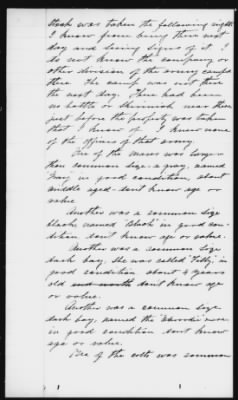 stock was taken the following night
I know from being there next
day and seeing signs of it I
do not know the company or
other division of the army camped
there The camp was not there
the next day. There had been
no battle or skirmish near there
just before the property was taken
that I know of. I know none
of the officers of that army.
One of the mares was larger
than common size a gray, named
in good condition, about
middle aged dont know age or
value
Another was a common size
black named "Black" in good con-
dition dont know age or value.
Another was a common size
dark bay, she was called "Filly" in
good condition about 4 years
old dont know age
or value.
Another was a common size
dark bay, named the mare
in good condition dont know
age or value.
One of the colts was common